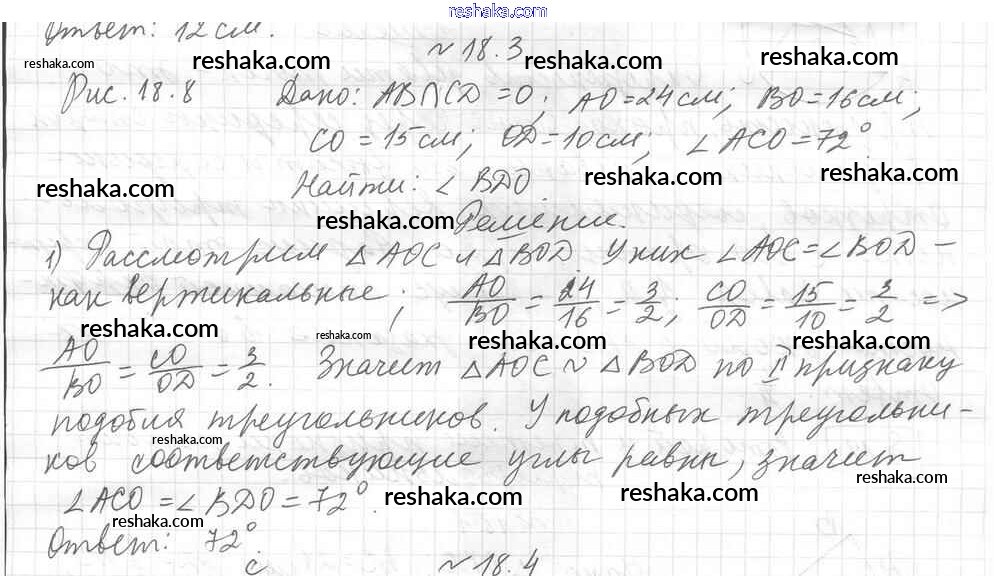 reshaka.com
Ответ: 12 см.
~ 18.3
reshaka.com reshaka.com reshaka.com reshaka.com
Рис. 18.8 Дано: AB∩CD = O; AO = 24 см; BO = 16 см;
CO = 15 см; OD = 10 см; ∠ACO = 72°
reshaka.com reshaka.com reshaka.com
Найти: ∠BDO
reshaka.com
Решение.
1) Рассмотрим △AOC и △BOD. У них ∠AOC = ∠BOD –
как вертикальные; AO/BO = 24/16 = 3/2; CO/OD = 15/10 = 3/2 =>
reshaka.com reshaka.com reshaka.com reshaka.com
AO/BO = CO/OD = 3/2. Значит △AOC ~ △BOD по II признаку
подобия треугольников. У подобных треугольни-
reshaka.com
ков соответствующие углы равны, значит
∠ACO = ∠BDO = 72°.
reshaka.com reshaka.com reshaka.com reshaka.com
Ответ: 72°.
~ 18.4